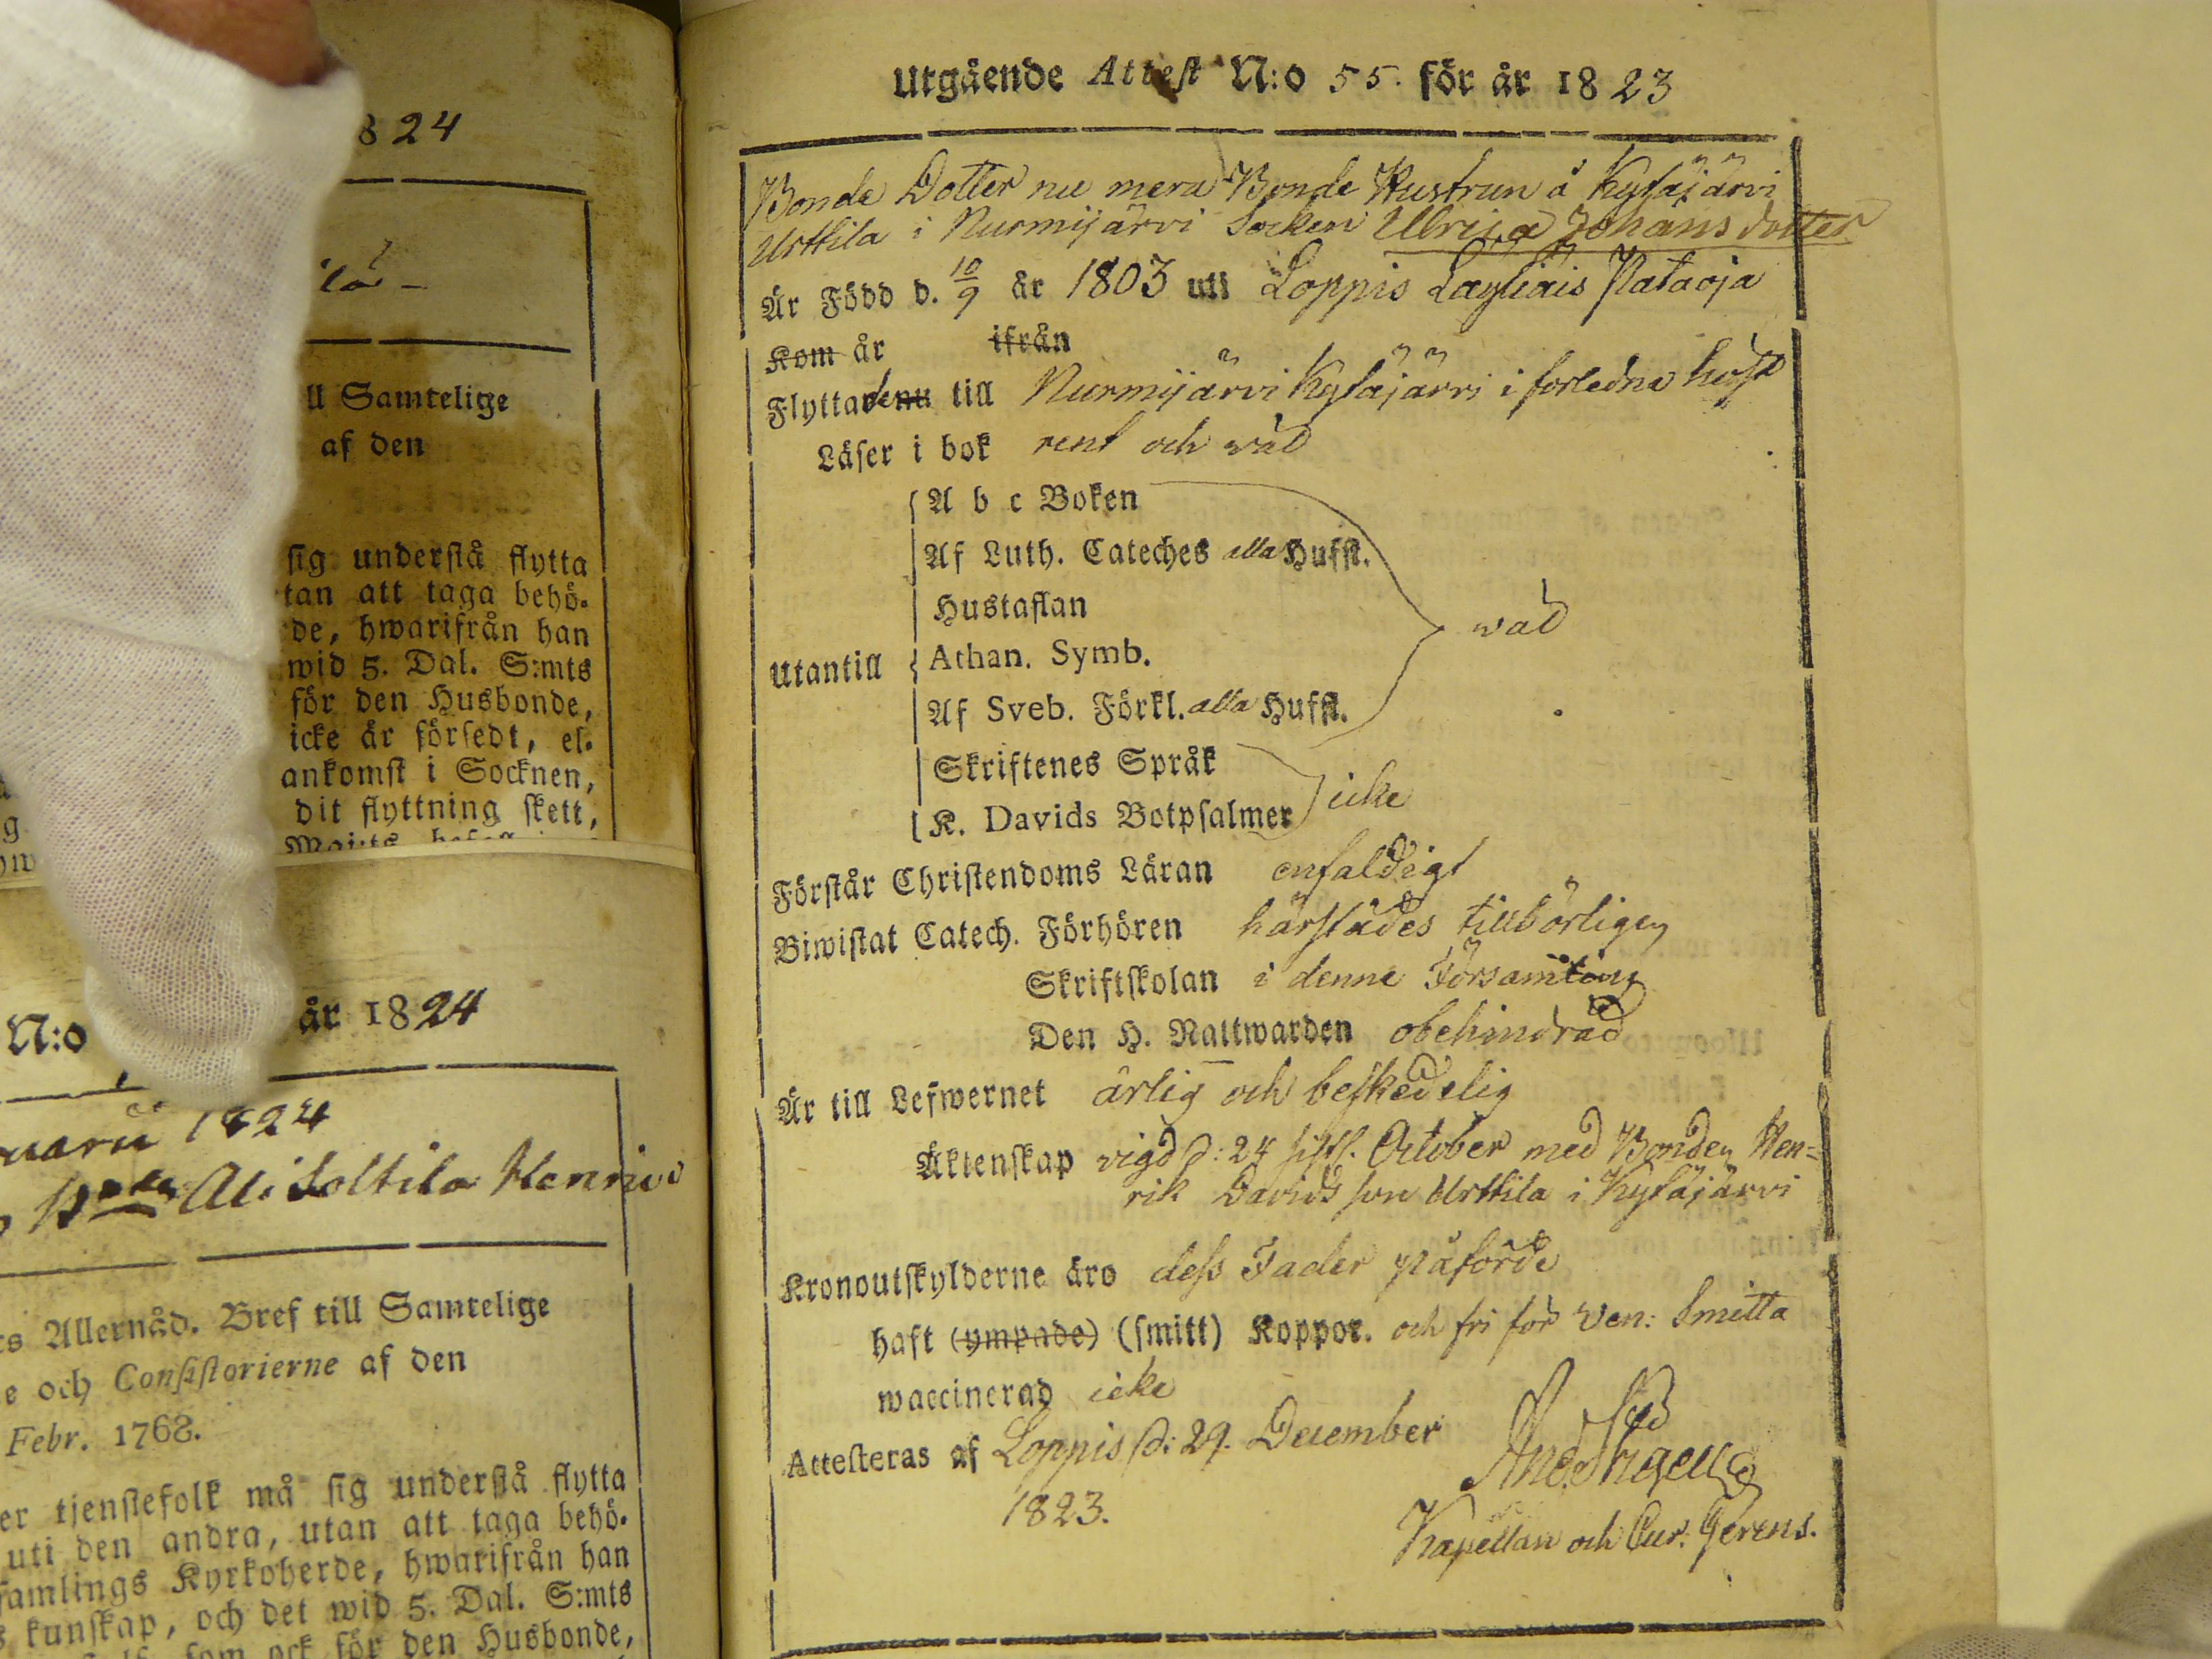 824
ll Samtelige
af den
sig understå flytta
tan att taga behö-
de, hwarifrån han
wid 5. Dal. S:mts
för den Husbonde,
icke är försedt, el-
ankomst i Socknen,
dit flyttning skett,
N:o år 1824
1824
Ali Soltila Henric
ts Allernåd. Bref till Samtelige
e och Consistorierne af den
Febr. 1768.
er tjenstefolk må sig understå flytta
uti den andra, utan att taga behö-
samlings Kyrkoherde, hwarifrån han
s kunskap, och det wid 5. Dal. S:mts
som ock för den Husbonde,
Utgående Attest N:o 55. för år 1823
Bonde Dotter nu mera Bonde Hustrun å Kytäjärvi
Urttila i Nurmijärvi Socken Ulrica Johansdotter
Är Född d. 10/9 år 1803 uti Loppis Läyliäis Pataoja
Kom år ifrån
Flyttade nu till Nurmijärvi Kytäjärvi i forledne höst
Läser i bok rent och wäl
A b c Boken
Af Luth. Cateches alla Hufst.
Hustaflan
wäl
Utantill Athan. Symb.
Af Sveb. Förkl. alla Hufst.
Skriftenes Språk
K. Davids Botpsalmer icke
Förstår Christendoms Läran enfaldigt
Biwistat Catech. Förhören härstädes tillbörligen
Skriftskolan i denne Församling
Den H. Nattwarden obehindrad
Är till Lefwernet ärlig och beskedelig
Äktenskap vigd d: 24 sistl. October med Bonden Hen=
rik Davids son Urttila i Kytäjärvi
Kronoutskylderne äro dess Fader påförde
haft (ympade) (smitt) Koppor. och fri för Ven: Smitta
waccinerad icke
Attesteras af Loppis d: 29. December
1823.
Kapellan och Cur. Gerens.